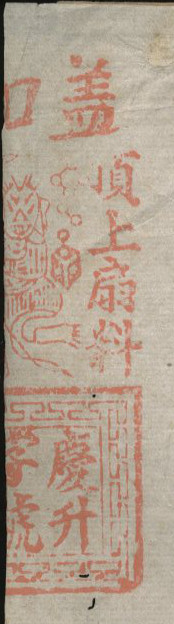 盖
頂上扇料
慶升
字號